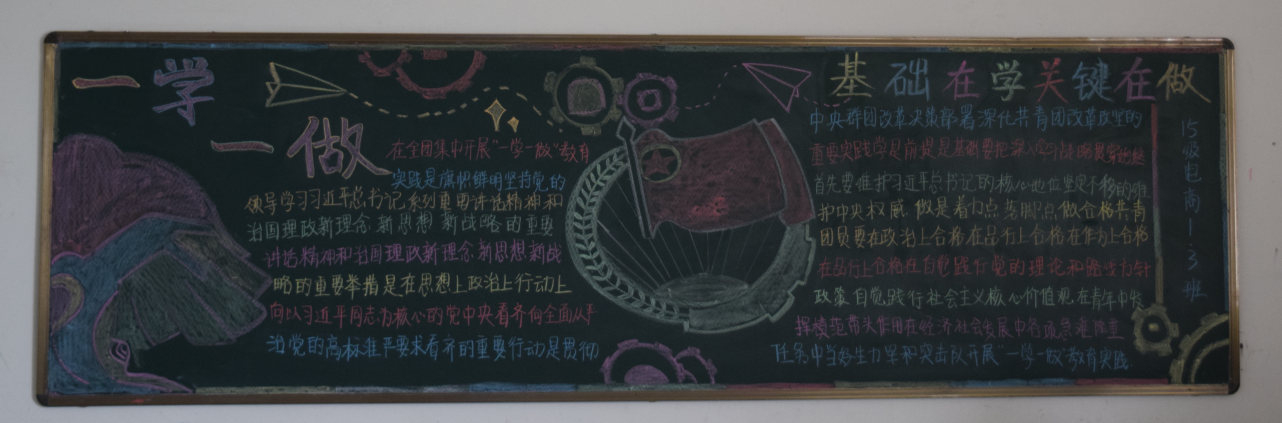 一学
一做
在全团集中开展“一学一做”教育
实践是旗帜鲜明坚持党的
领导学习习近平总书记系列重要讲话精神和
治国理政新理念新思想新战略的重要
讲话精神和治国理政新理念新思想新战
略的重要举措是在思想上政治上行动上
向以习近平同志为核心的党中央看齐向全面从严
治党的高标准严要求看齐的重要行动是贯彻
基础在学关键在做
中央群团改革决策部署深化共青团改革攻坚的
重要实践学是前提是基础要把深入学习
首先要维护习近平总书记的核心地位坚定不移的维
护中央权威做是着力点落脚点做合格共青
团员要在政治上合格在品行上合格在作为上合格
在品行上合格在自觉践行党的理论和路线方针
政策自觉践行社会主义核心价值观在青年中发
挥模范带头作用在经济社会发展中各项急难险重
任务中当好生力军和突击队开展“一学一做”教育实践
15级电商1.3班